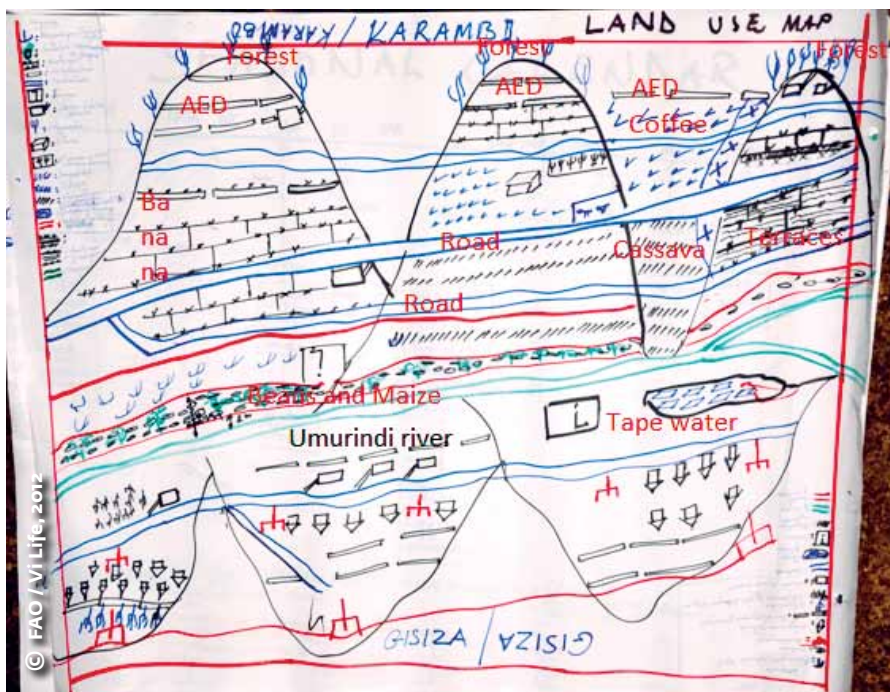 KARAMBO / KARAMBO LAND USE MAP
Forest Forest Forest
AED AED AED
Coffee
Ba
na
na
Road Cassava Terraces
Road
?
Beans and Maize
Tape water
Umurindi river
GISIZA / GISIZA
© FAO / Vi Life, 2012